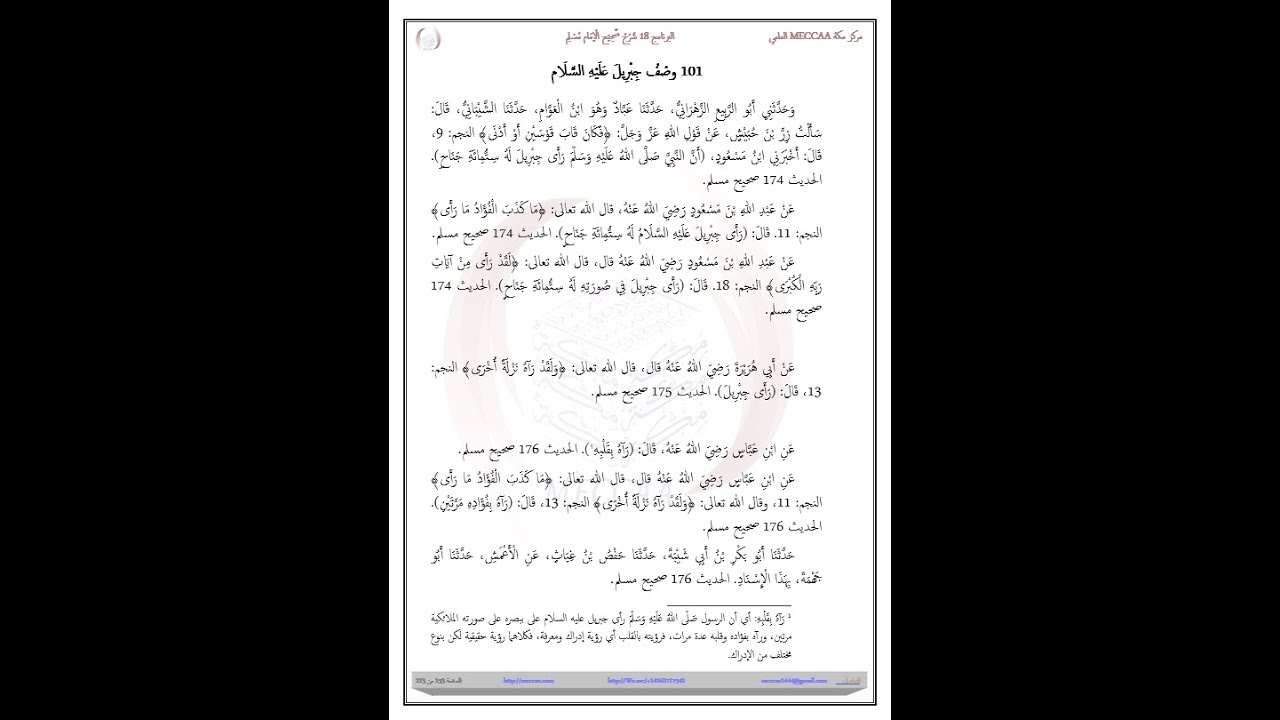 مركز مكة MECCAA العلمي
البرنامج 18 شَرْحُ صَّحِيحِ الْإِمَامِ مُسْلِمِ
101 وصْفُ جِبْرِيلَ عَلَيْهِ السَّلَام
وَحَدَّثَنِي أَبُو الرَّبِيعِ الزَّهْرَانِيُّ، حَدَّثَنَا عَبَّادٌ وَهُوَ ابْنُ الْعَوَّامِ، حَدَّثَنَا الشَّيْبَانِيُّ، قَالَ:
سَأَلْتُ زِرَّ بْنَ حُبَيْشٍ، عَنْ قَوْلِ اللهِ عَزَّ وَجَلَّ: ﴿فَكَانَ قَابَ قَوْسَيْنِ أَوْ أَدْنَى﴾ النجم: 9،
قَالَ: أَخْبَرَنِي ابْنُ مَسْعُودٍ، (أَنَّ النَّبِيَّ صَلَّى اللهُ عَلَيْهِ وَسَلَّمَ رَأَى جِبْرِيلَ لَهُ سِتُّمِائَةِ جَنَاحٍ).
الحديث 174 صحيح مسلم.
عَنْ عَبْدِ اللهِ بْنَ مَسْعُودٍ رَضِيَ اللهُ عَنْهُ، قال الله تعالى: ﴿مَا كَذَبَ الْفُؤَادُ مَا رَأَى﴾
النجم: 11. قَالَ: (رَأَى جِبْرِيلَ عَلَيْهِ السَّلَامُ لَهُ سِتُّمِائَةِ جَنَاحٍ). الحديث 174 صحيح مسلم.
عَنْ عَبْدِ اللهِ بْنَ مَسْعُودٍ رَضِيَ اللهُ عَنْهُ قال، قال الله تعالى: ﴿لَقَدْ رَأَى مِنْ آيَاتِ
رَبِّهِ الْكُبْرَى﴾ النجم: 18. قَالَ: (رَأَى جِبْرِيلَ فِي صُورَتِهِ لَهُ سِتُّمِائَةِ جَنَاحٍ). الحديث 174
صحيح مسلم.
عَنْ أَبِي هُرَيْرَةَ رَضِيَ اللهُ عَنْهُ قال، قال الله تعالى: ﴿وَلَقَدْ رَآهُ نَزْلَةً أُخْرَى﴾ النجم:
13، قَالَ: (رَأَى جِبْرِيلَ). الحديث 175 صحيح مسلم.
عَنِ ابْنِ عَبَّاسٍ رَضِيَ اللهُ عَنْهُ، قَالَ: (رَآهُ بِقَلْبِهِ¹). الحديث 176 صحيح مسلم.
عَنِ ابْنِ عَبَّاسٍ رَضِيَ اللهُ عَنْهُ قال، قال الله تعالى: ﴿مَا كَذَبَ الْفُؤَادُ مَا رَأَى﴾
النجم: 11، وقال الله تعالى: ﴿وَلَقَدْ رَآهُ نَزْلَةً أُخْرَى﴾ النجم: 13، قَالَ: (رَآهُ بِفُؤَادِهِ مَرَّتَيْنِ).
الحديث 176 صحيح مسلم.
حَدَّثَنَا أَبُو بَكْرِ بْنُ أَبِي شَيْبَةَ، حَدَّثَنَا حَفْصُ بْنُ غِيَاثٍ، عَنِ الْأَعْمَشِ، حَدَّثَنَا أَبُو
جَهْمَةَ، بِهَذَا الْإِسْنَادِ. الحديث 176 صحيح مسلم.
¹ رَآهُ بِقَلْبِهِ: أي أن الرسول صَلَّى اللهُ عَلَيْهِ وَسَلَّمَ رأى جبريل عليه السلام على ببصره على صورته الملائكية
مرتين، ورآه بفؤاده وقلبه عدة مرات، فرؤيته بالقلب أي رؤية إدراك ومعرفة، فكلاهما رؤية حقيقية لكن بنوع
مختلف من الإدراك.
meccaa1444@gmail.com
http://meccaa.com